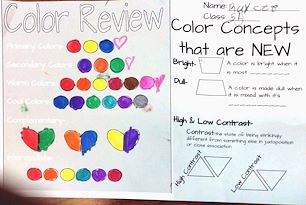 Color Review
Primary Colors-
Secondary Colors-
Warm Colors-
Cool Colors-
Complementary-
Intermediate-
Name:
Class:
Color Concepts
that are NEW
Bright-
A color is bright when it
is most
Dull-
A color is made dull when
it is mixed with it's
High & Low Contrast-
Contrast-the state of being strikingly
different from something else in juxtaposition
or close association
High Contrast
Low Contrast